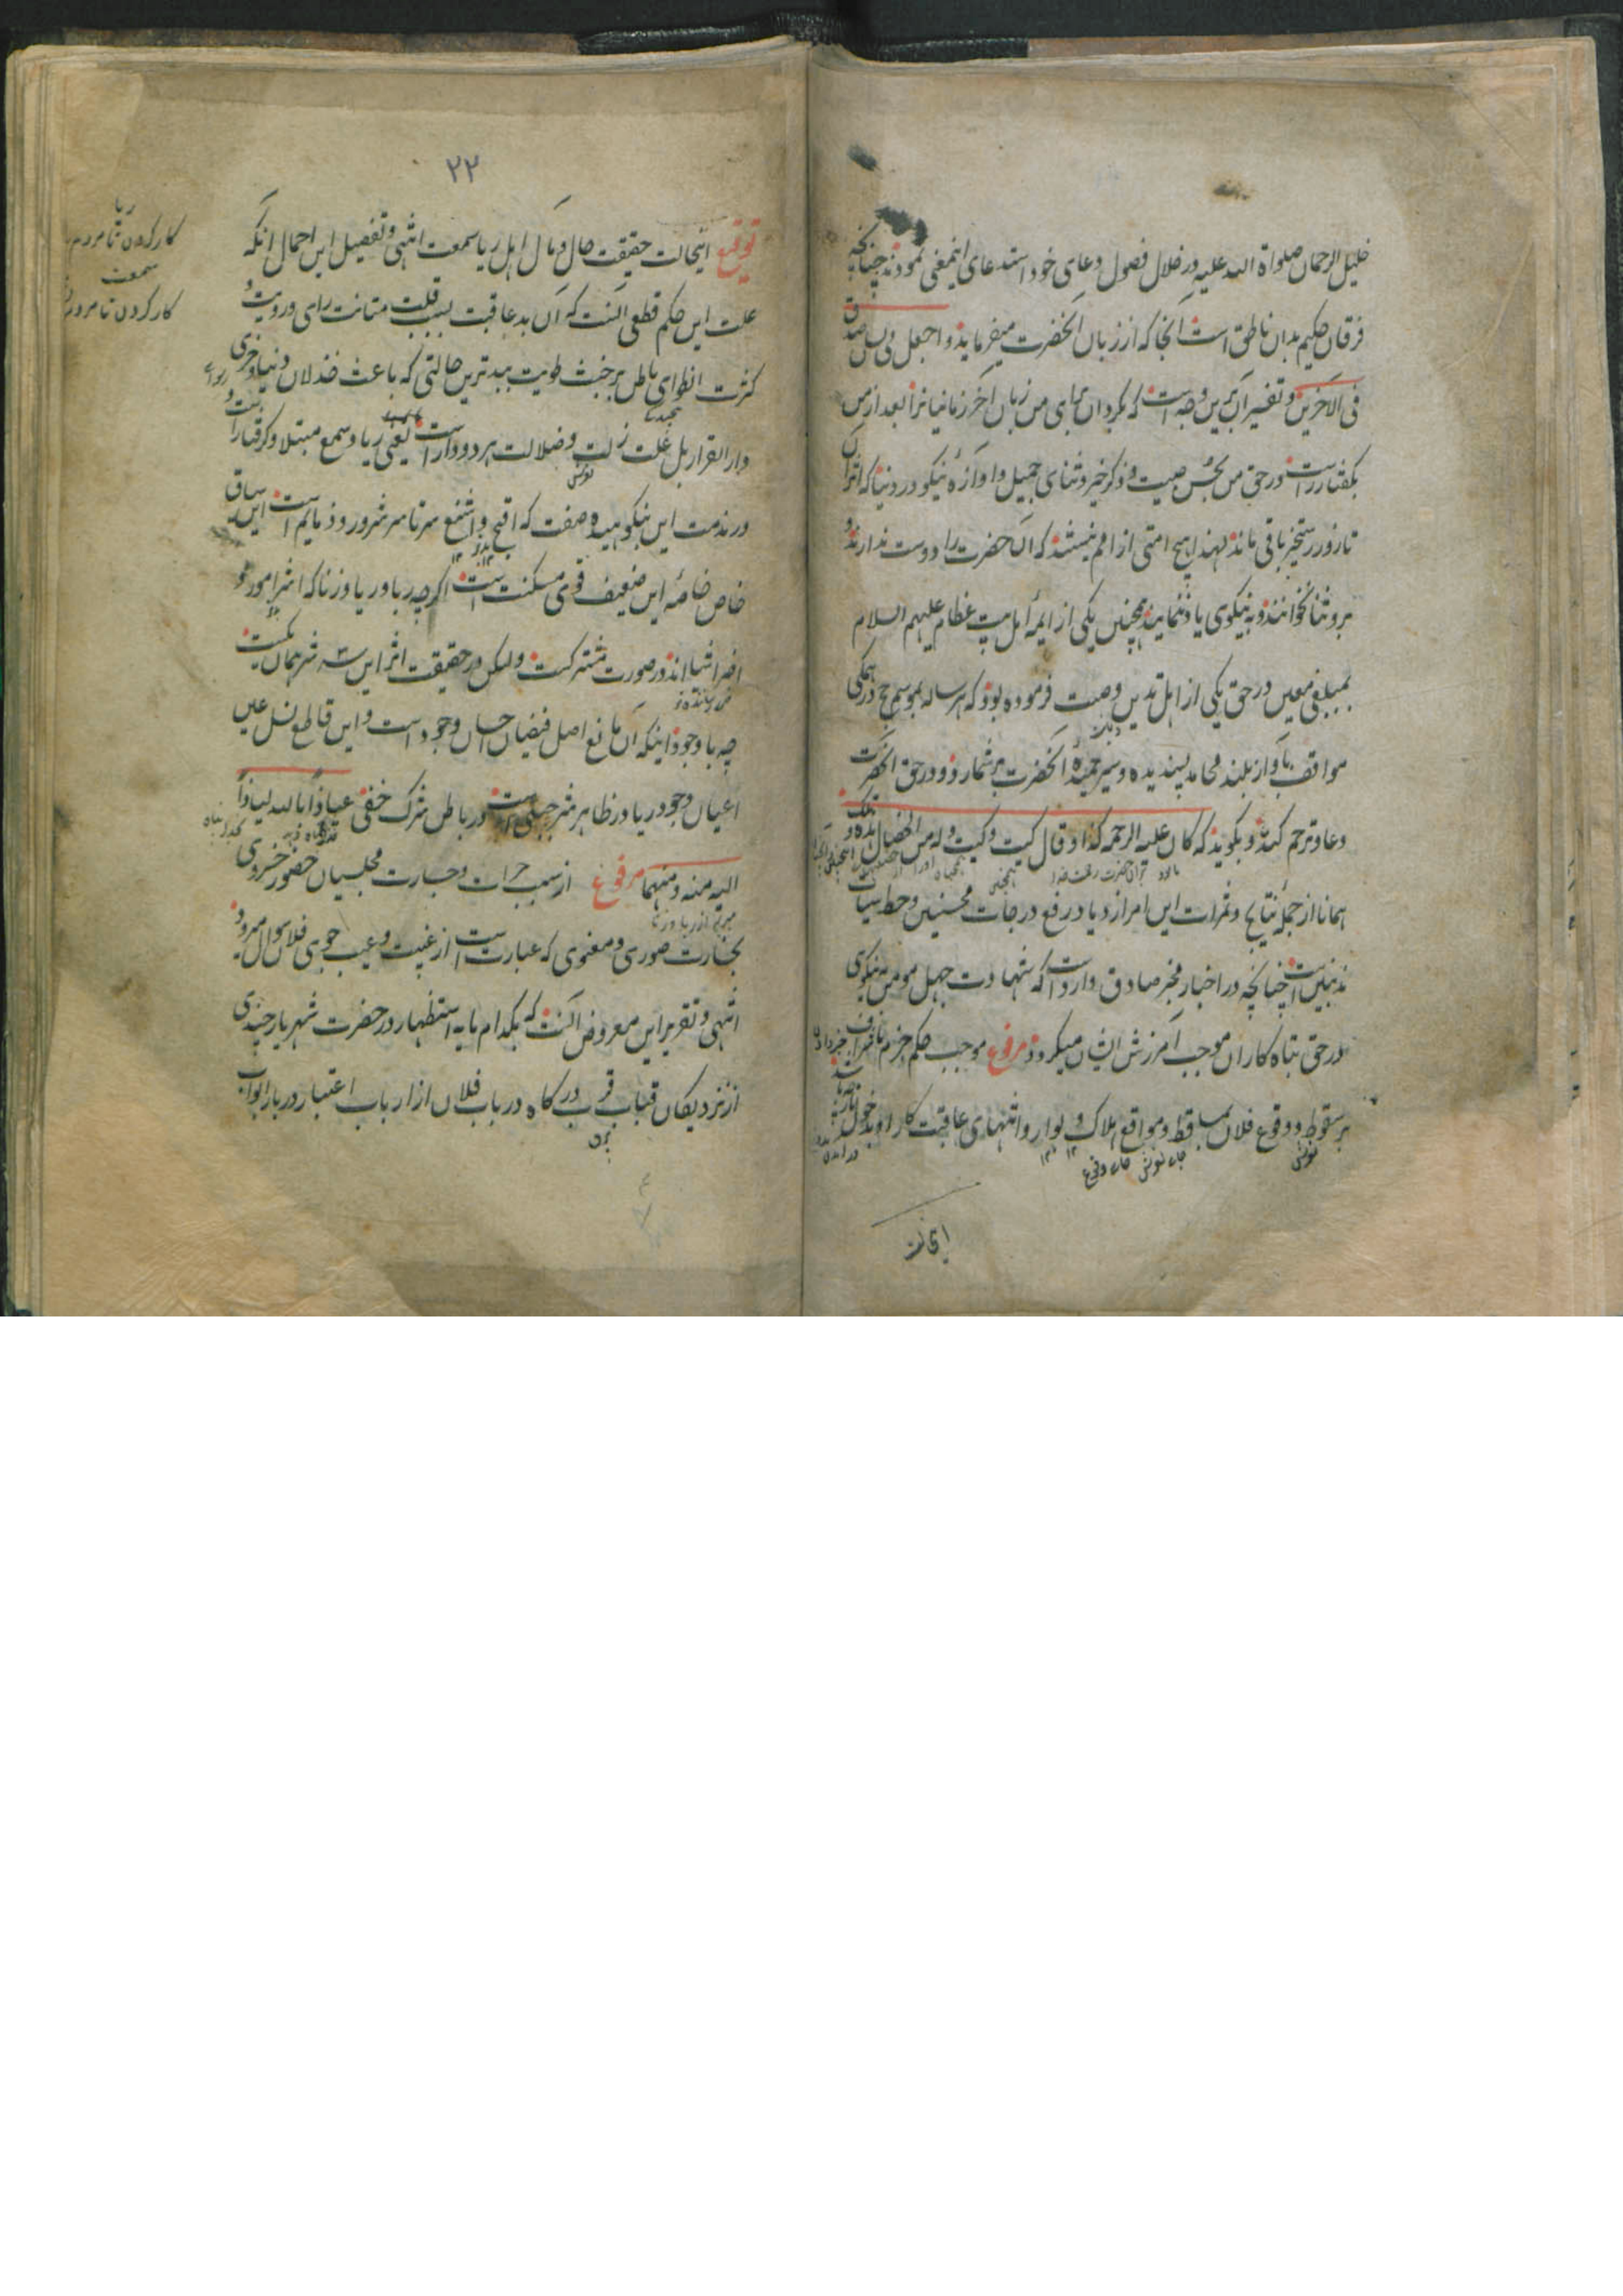 خلیل الرحمان صلواة الله علیه در خلال فصول دعای خود استدعای اینمعنی نموده چنانچه
فرقان حکیم بدان ناطق است انجا که از زبان آنحضرت میفرماید و اجعل لی لسان صدق
فی الاخرین و تفسیر آن برین وجه است که بگردان برای من زبان آخر زمانیانرا بعد از من
بگفتار راست در حق من بحسن صیت و ذکر خیر و ثنای جمیل و اوازهٔ نیکو در دنیا که اثر آن
تا روز رستخیز باقی ماند لهذا هیچ امتی از امم نیستند که آن حضرت را دوست ندارند و
برو ثنا نخوانند و به نیکوی یاد ننمایند همچنین یکی از ایمهٔ اهل بیت عظام علیهم السلام
بمبلغی معین در حق یکی از اهل تدین وصیت فرموده بود که هر ساله بموسم حج در همگی
مواقف باواز بلند محامد پسندیده و سیر حمیدهٔ آنحضرت بر شمارد و در حق آنحضرت
دعا و ترحم کند و بگوید که کان علیه الرحمه کذا و قال کیت و کیت و له من الخصال تلک
همانا از جملهٔ نتایج و ثمرات این امر ازدیاد رفع درجات محسنین و حط سیات
مذنبین است چنانچه در اخبار مخبر صادق وارد است که شهادت چهل مومن به نیکوی
در حق تباه کاران موجب آمرزش ایشان میگردد مرفوع موجب حکم جزم
بر سقوط و وقوع فلان بمساقط و مواقع هلاک و بوار و انتهای عاقبت کار او بدخول نار
لغزش جای لغزش جای وقوع
۲۲
توقیع اینحالت حقیقت حال و مآل اهل ریا و سمعت انتهی و تفصیل این اجمال آنکه
علت این حکم قطعی آنست که آن بدعاقبت بسبب قلت متانت رای و رویت و
کثرت انطوای باطن بر خبث طویت ببدترین حالتی که باعث خذلان دنیا و خزی
دار القرار بل علت زلت و ضلالت هر دو دار است یعنی ریا و سمع مبتلا و گرفتار است
در مذمت این نکوهیده صفت که اقبح و اشنع سر تا سر شرور و ذمایم است این سیاق
خاص خامهٔ این ضعیف قوی مسکنت است اگرچه ربا و ریا و زنا که اشر امور و
اضر اشیا اند در صورت مشترکست ولیکن در حقیقت اثر این سه شر همان یکیست
چه با وجود اینکه آن مانع اصل فیضان احسان وجود است و این قاطع نسل عین
اعیان وجود ریا در ظاهر شر جلی است و در باطن شرک خفی عیاذا بالله لیاذا
الیه منه و منهما مرفوع از سبب جرات و جسارت مجلسیان حضور خسروی
بخسارت صوری و معنوی که عبارت است از غیبت و عیب جوی فلان سوال میرود
انتهی و تقریر این معروض آنست که بکدام مایه استظهار در حضرت شهریار چندی
از نزدیکان قباب قرب درگاه در باب فلان از ارباب اعتبار دربار ابواب
ریا
کار کردن تا مردم
سمعت
کار کردن تا مردم